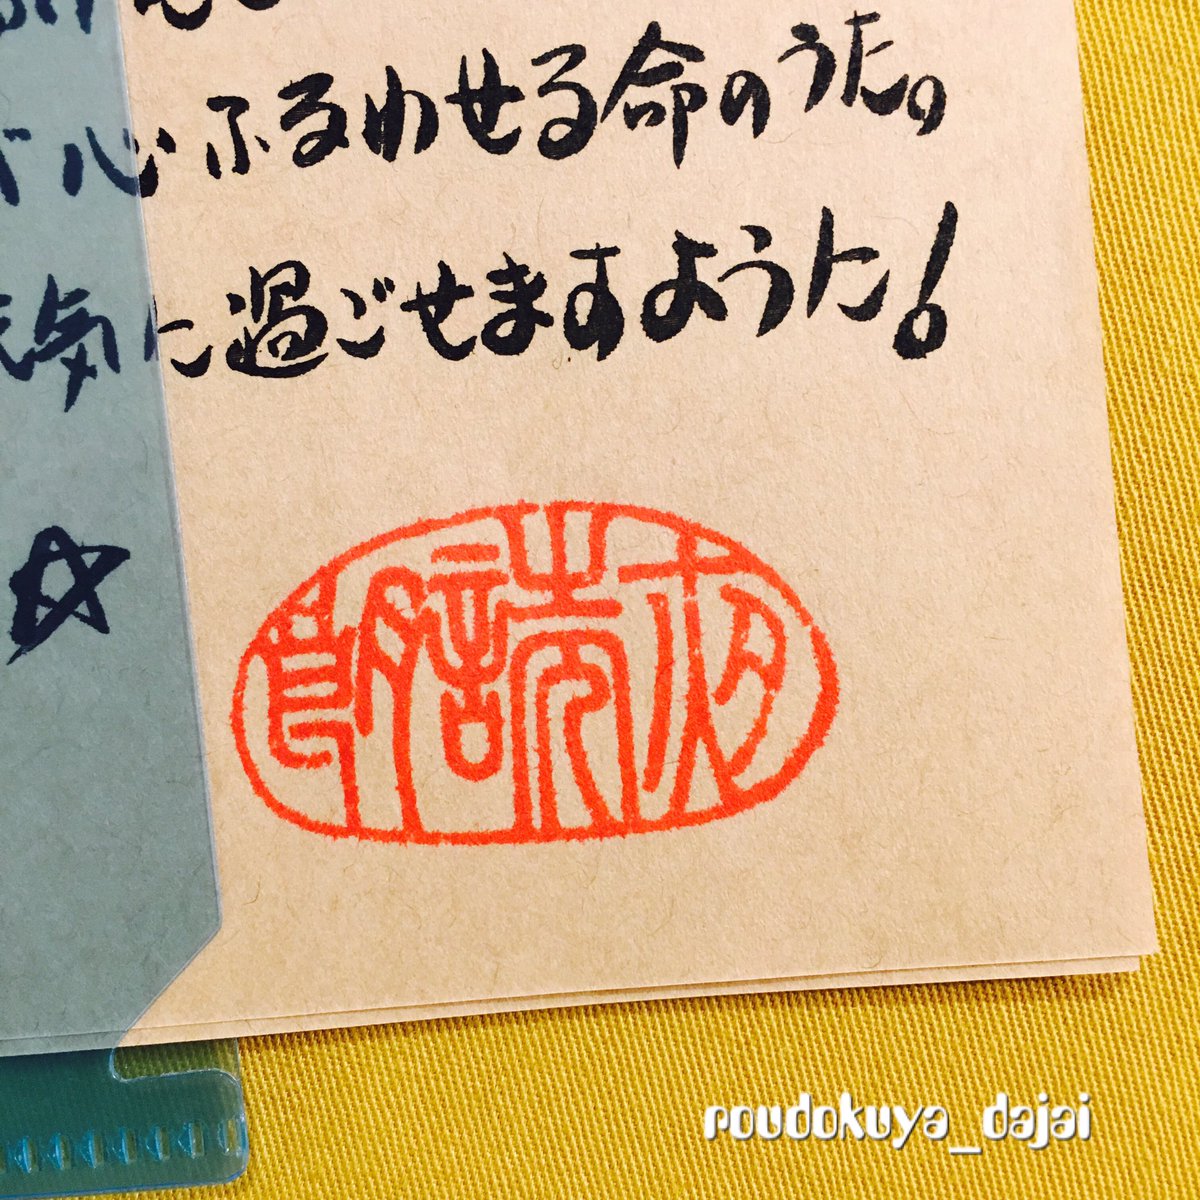 心ふるわせる命のうた。
気に過ごせますように!
roudokuya_dajai